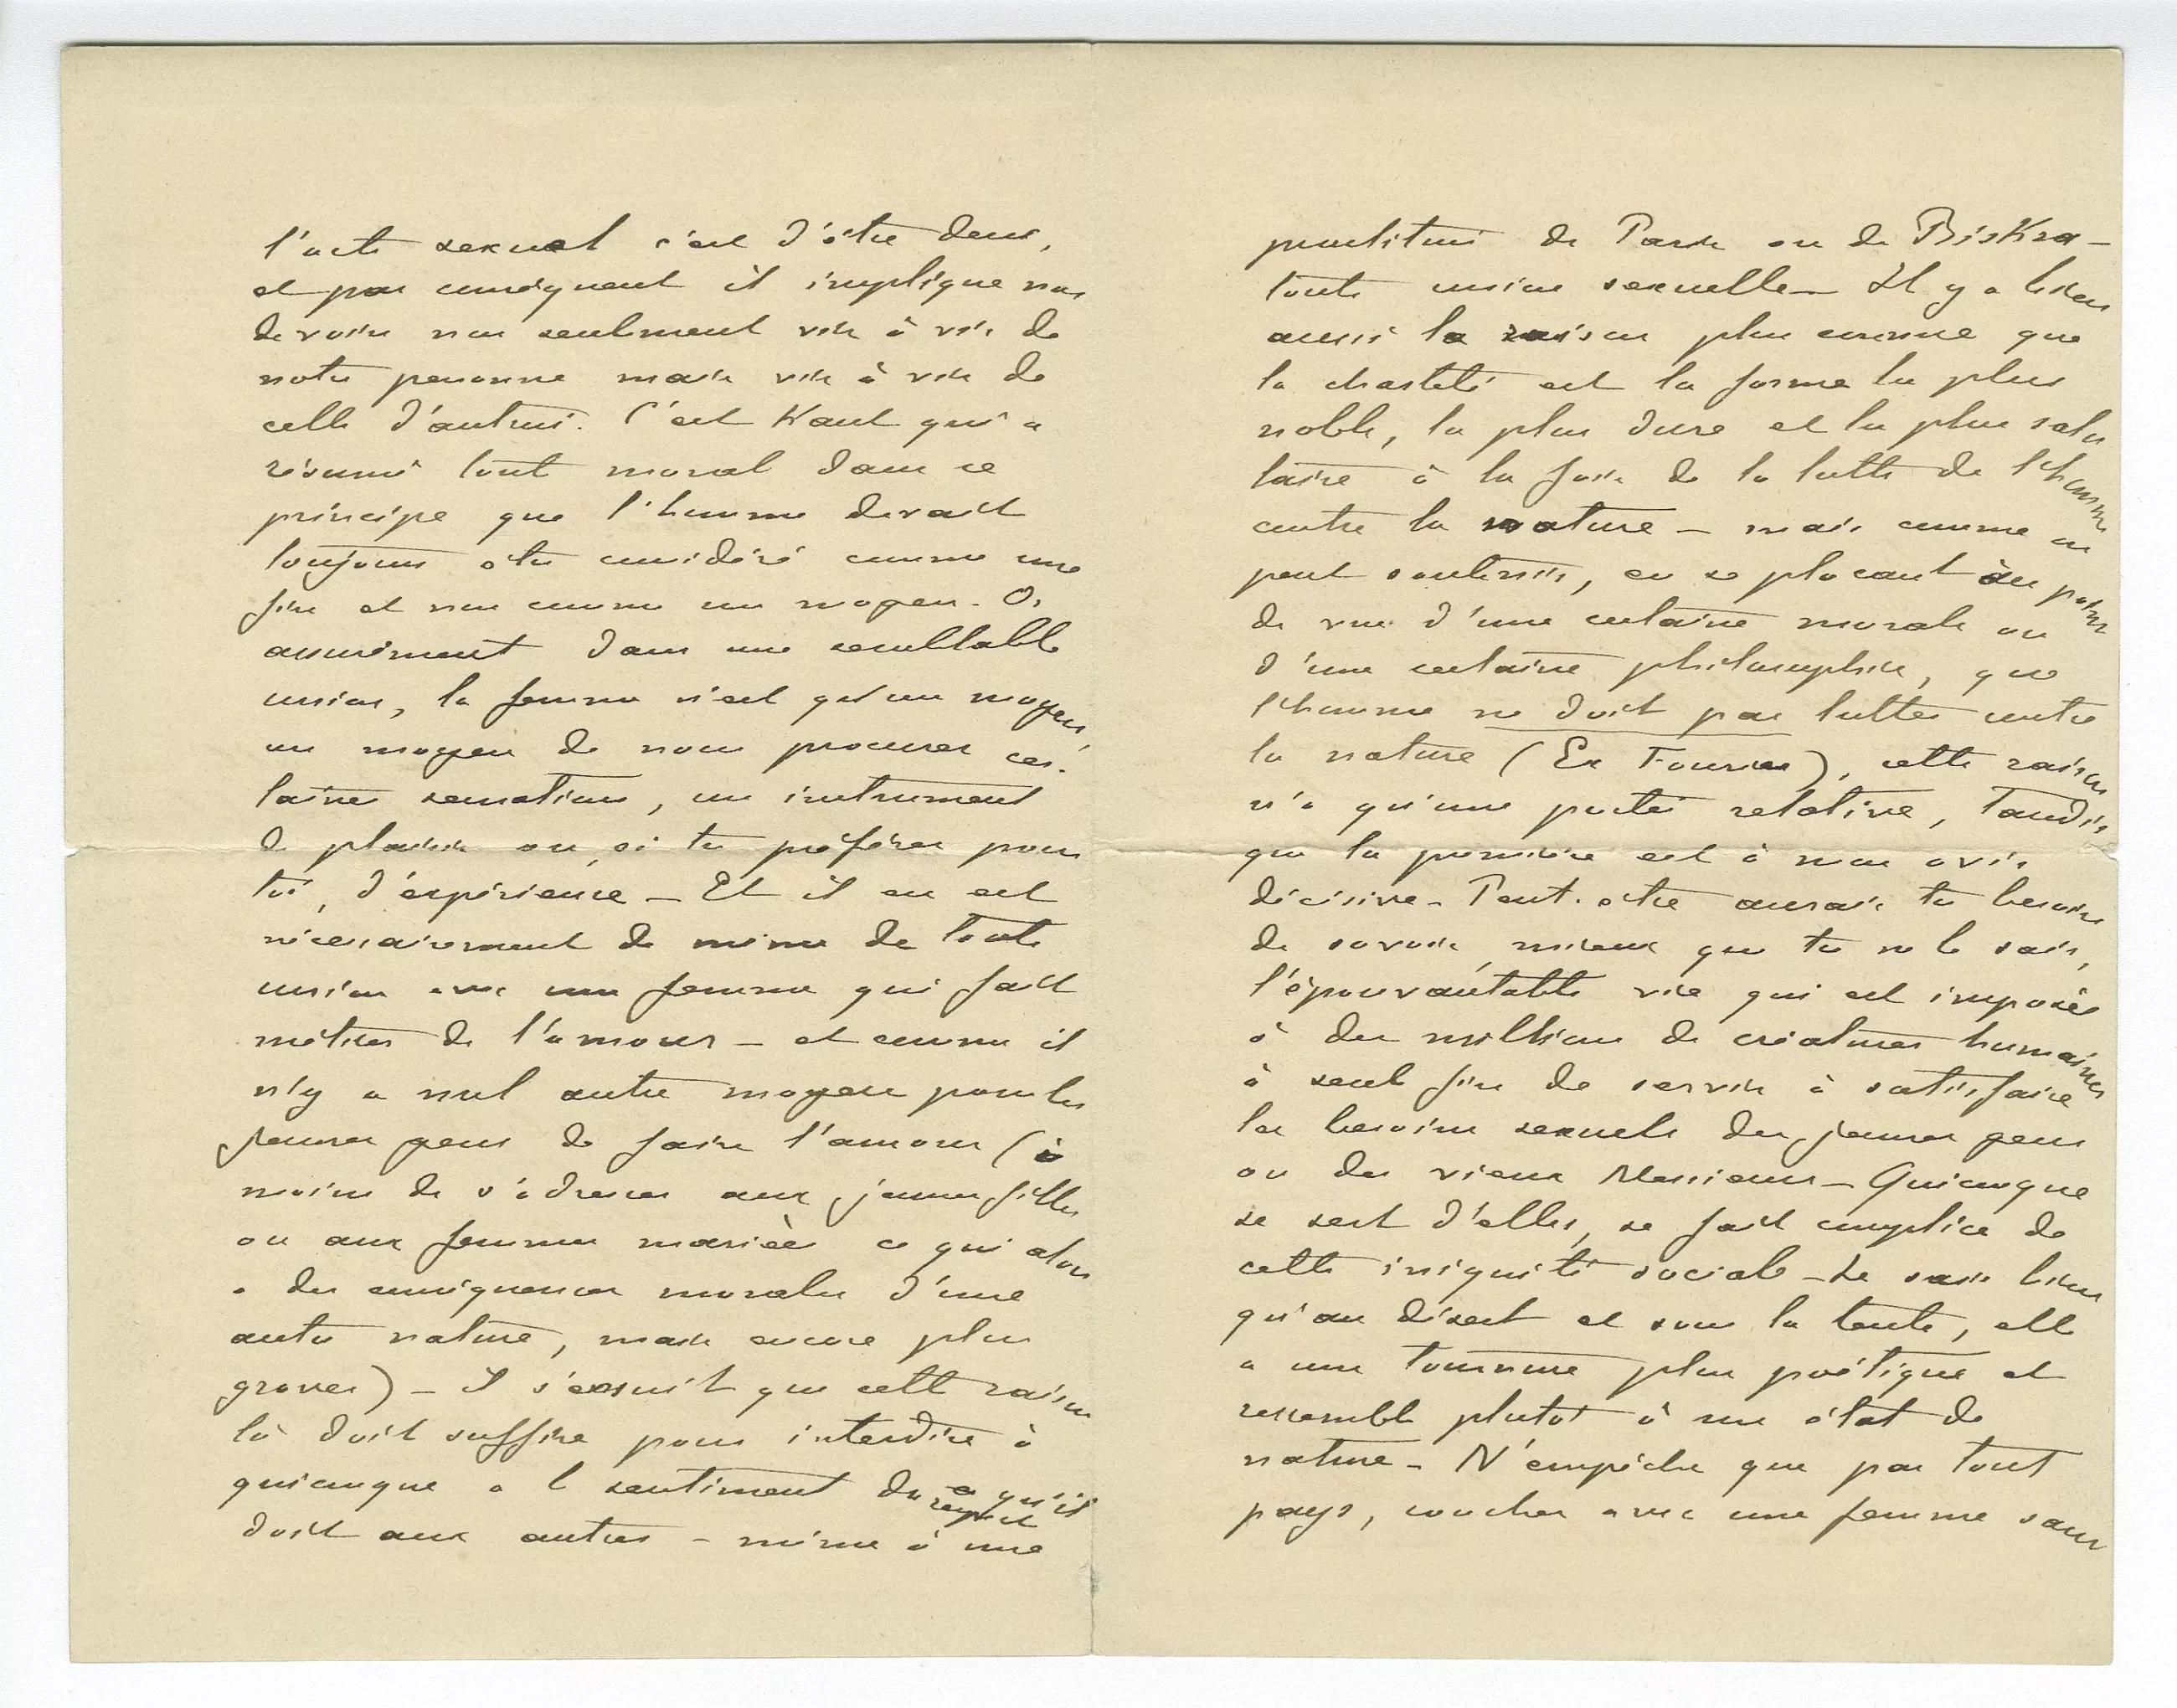 l'acte sexuel c'est d'être deux,
et par conséquent il implique nos
devoirs non seulement vis à vis de
notre personne mais vis à vis de
celle d'autrui. C'est Kant qui a
résumé toute moral dans ce
principe que l'homme devait
toujours être considéré comme une
fin et non comme un moyen. Or
assurément dans une semblable
union, la femme n'est qu'un moyen,
un moyen de nous procurer cer-
taines sensations, un instrument
de plaisir ou, si tu préfères pour
toi, d'expérience – Et il en est
nécessairement de même de toute
union avec une femme qui fait
métier de l'amour – et comme il
n'y a nul autre moyen pour les
jeunes gens de faire l'amour (à
moins de s'adresser aux jeunes filles
ou aux femmes mariées ce qui alors
a des conséquences morales d'une
autre nature, mais encore plus
graves) – il s'ensuit que cette raison
là doit suffire pour interdire à
quiconque a le sentiment du respect qu'il
doit aux autres – même à une
prostituée de Paris ou de Biskra –
toute union sexuelle – Il y a bien
aussi la raison plus connue que
la chasteté est la forme la plus
noble, la plus dure et la plus salu
taire à la fois de la lutte de l'homme
contre la nature – mais comme on
peut soutenir, en se plaçant au point
de vue d'une certaine morale ou
d'une certaine philosophie, que
l'homme ne doit pas lutter contre
la nature (Ex Fourier), cette raison
n'a qu'une portée relative, tandis
que la première est à mon avis
décisive – Peut-être aurais tu besoin
de savoir, mieux que tu ne le sais,
l'épouvantable vie qui est imposée
à des millions de créatures humaines
à seule fin de servir à satisfaire
les besoins sexuels des jeunes gens
ou des vieux Messieurs – Quiconque
se sert d'elles, se fait complice de
cette iniquité sociale – Je sais bien
qu'au désert et sous la tente, elle
a une tournure plus poétique et
ressemble plutôt à un état de
nature – N'empêche que par tout
pays, coucher avec une femme sans